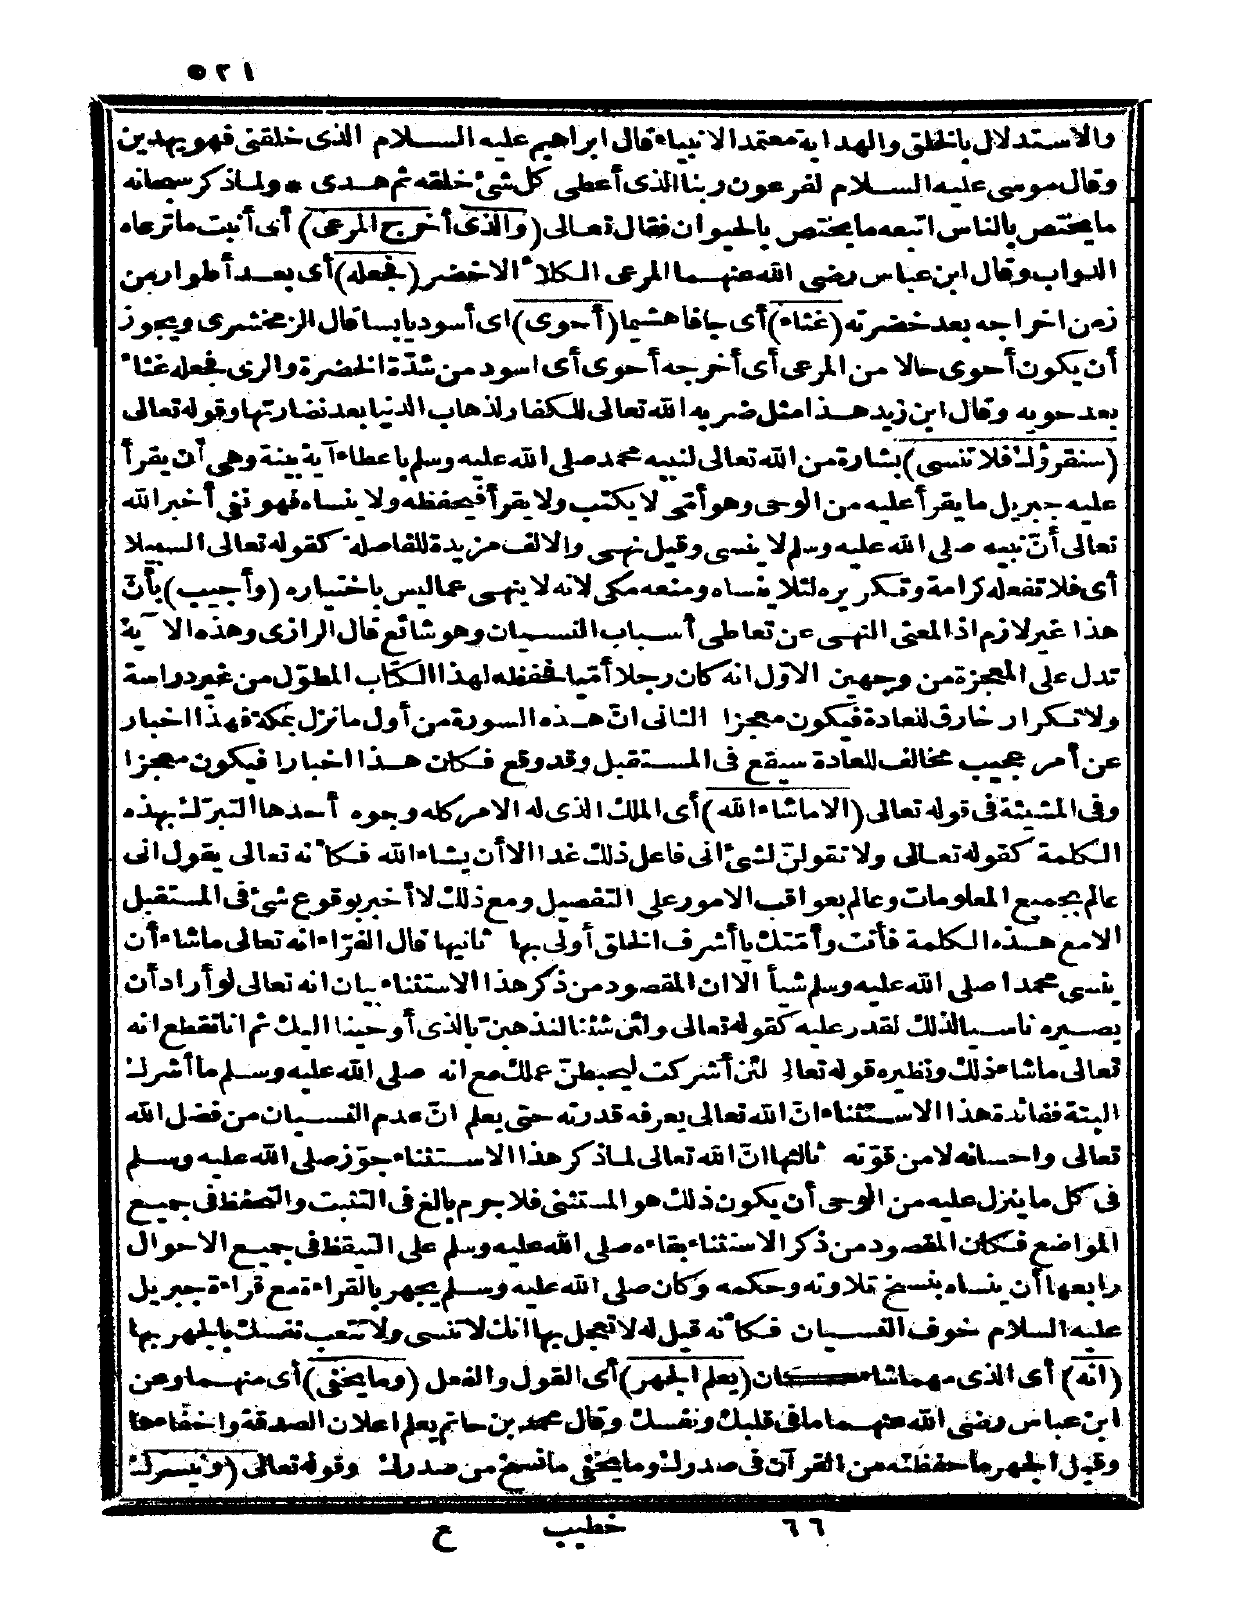 ٥٢١
والاستدلال بالخلق والهداية معتمد الانبياء قال ابراهيم عليه السلام الذى خلقنى فهو يهدين
وقال موسى عليه السلام لفرعون ربنا الذى أعطى كل شئ خلقه ثم هدى * ولما ذكر سبحانه
ما يختص بالناس اتبعه ما يختص بالحيوان فقال تعالى (والذى أخرج المرعى) أى أنبت ما ترعاه
الدواب وقال ابن عباس رضى الله عنهما المرعى الكلأ الاخضر (فجعله) أى بعد أطوار من
زمن اخراجه بعد خضرته (غثاء) أى جافا هشيما (أحوى) اى أسود يابسا قال الزمخشرى ويجوز
أن يكون أحوى حالا من المرعى أى أخرجه أحوى أى اسود من شدّة الخضرة والرى فجعله غثاء
بعد حويه وقال ابن زيد هذا مثل ضربه الله تعالى للكفار لذهاب الدنيا بعد نضارتها وقوله تعالى
(سنقرؤك فلا تنسى) بشارة من الله تعالى لنبيه محمد صلى الله عليه وسلم باعطاء آية بينة وهى أن يقرأ
عليه جبريل ما يقرأ عليه من الوحى وهو أمّى لا يكتب ولا يقرأ فيحفظه ولا ينساه فهو نفى أخبر الله
تعالى أنّ نبيه صلى الله عليه وسلم لا ينسى وقيل نهى والالف مزيدة للفاصلة كقوله تعالى السبيلا
أى فلا تفعله كرامة وتكريره لئلا ينساه ومنعه مكى لانه لا ينهى عما ليس باختياره (وأجيب) بأنّ
هذا غير لازم اذ المعنى النهى عن تعاطى أسباب النسيان وهو شائع قال الرازى وهذه الآية
تدل على المعجزة من وجهين الاوّل انه كان رجلا أمّيا فحفظه لهذا الكتاب المطوّل من غير دراسة
ولا تكرار خارق للعادة فيكون معجزا الثانى انّ هذه السورة من أول ما نزل بمكة فهذا اخبار
عن أمر عجيب مخالف للعادة سيقع فى المستقبل وقد وقع فكان هذا اخبارا فيكون معجزا
وفى المشيئة فى قوله تعالى (الا ما شاء الله) أى الملك الذى له الامر كله وجوه أحدها التبرّك بهذه
الكلمة كقوله تعالى ولا تقولنّ لشئ انى فاعل ذلك غدا الا أن يشاء الله فكأنه تعالى يقول انى
عالم بجميع المعلومات وعالم بعواقب الامور على التفصيل ومع ذلك لا أخبر بوقوع شئ فى المستقبل
الا مع هذه الكلمة فأنت وأمّتك يا أشرف الخلق أولى بها ثانيها قال الفرّاء انه تعالى ما شاء أن
ينسى محمدا صلى الله عليه وسلم شيأ الا ان المقصود من ذكر هذا الاستثناء بيان انه تعالى لو أراد أن
يصيره ناسيا لذلك لقدر عليه كقوله تعالى ولئن شئنا لنذهبنّ بالذى أوحينا اليك ثم انا نقطع انه
تعالى ما شاء ذلك ونظيره قوله تعالى لئن أشركت ليحبطنّ عملك مع انه صلى الله عليه وسلم ما أشرك
البتة ففائدة هذا الاستثناء انّ الله تعالى يعرفه قدرته حتى يعلم انّ عدم النسيان من فضل الله
تعالى واحسانه لا من قوّته ثالثها انّ الله تعالى لما ذكر هذا الاستثناء جوّز صلى الله عليه وسلم
فى كل ما ينزل عليه من الوحى أن يكون ذلك هو المستثنى فلا جرم بالغ فى التثبت والتحفظ فى جميع
المواضع فكان المقصود من ذكر الاستثناء بقاءه صلى الله عليه وسلم على التيقظ فى جميع الاحوال
رابعها أن ينساه بنسخ تلاوته وحكمه وكان صلى الله عليه وسلم يجهر بالقراءة مع قراءة جبريل
عليه السلام خوف النسيان فكأنه قيل له لا تعجل بها انك لا تنسى ولا تتعب نفسك بالجهر بها
(انّه) أى الذى مهما شاء كان (يعلم الجهر) أى القول والفعل (وما يخفى) أى منهما وعن
ابن عباس رضى الله عنهما ما فى قلبك ونفسك وقال محمد بن حاتم يعلم اعلان الصدقة واخفاءها
وقيل الجهر ما حفظته من القرآن فى صدرك وما يخفى ما نسخ من صدرك وقوله تعالى (ونيسرك
٦٦ خطيب ع